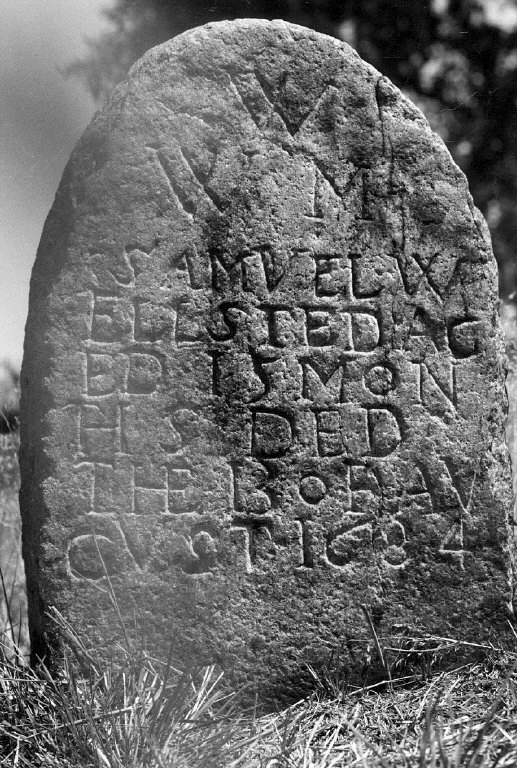 SAMVEL·W
ELLSTED AG
ED 15 MON
THS DED
THE 8 OF AV
GVST 1694